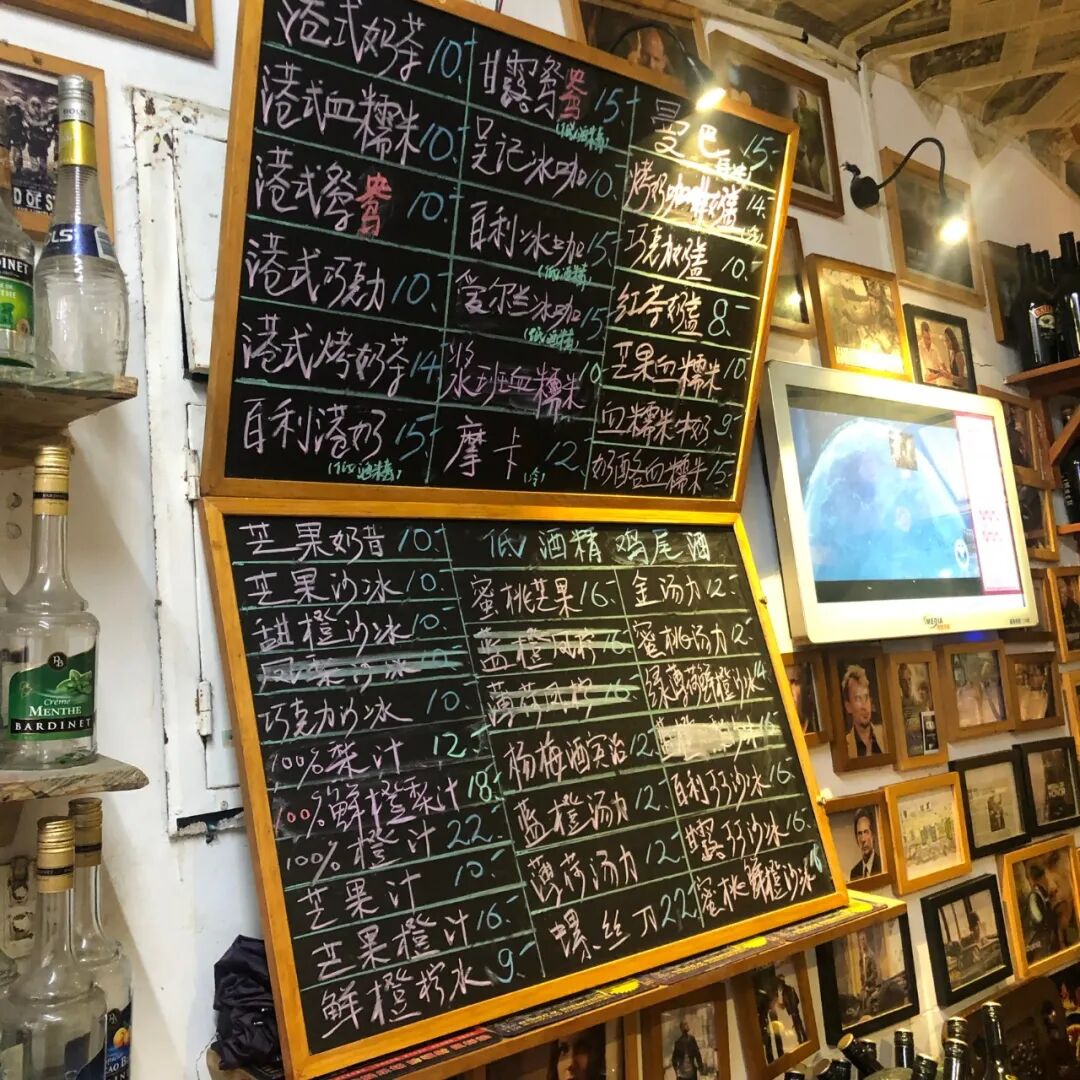 港式奶茶 10.-
港式血糯米 10.
港式鸳鸯 10.-
港式巧克力 10.-
港式烤奶茶 14
百利港奶 15.-
(低酒精)
甘露鸳鸯 15.-
(低酒精)
吴记冰咖 10.
百利冰咖 15.-
(低酒精)
爱尔兰冰咖 15.-
(低酒精)
水班血糯米 10
摩卡 12.
(冷)
曼巴 15.-
烤奶咖啡奶盖 14.-
巧克力奶盖 10.-
红茶奶盖 8.-
芒果血糯米 10.-
血糯米牛奶 9.-
奶酪血糯米 15.-
芒果奶昔 10.-
芒果沙冰 10.-
甜橙沙冰 10.-
巧克力沙冰 10.-
100%梨汁 12.-
100%鲜橙梨汁 18.-
100%橙汁 22.-
芒果汁 10.-
芒果橙汁 16.-
鲜橙柠水 9.-
低酒精鸡尾酒
蜜桃芒果 16.-
蓝橙风柠 16.
薄荷风柠 16.-
杨梅酒宾治 12.
蓝橙汤力 12.-
薄荷汤力 12.-
螺丝刀 22.-
金汤力 12.-
蜜桃汤力 12.-
绿薄荷鲜橙沙冰 14
百利巧巧沙冰 16.-
甘露巧巧沙冰 16.-
蜜桃鲜橙沙冰
BOLS
Crème de
MENTHE
BARDINET
iMEDIA